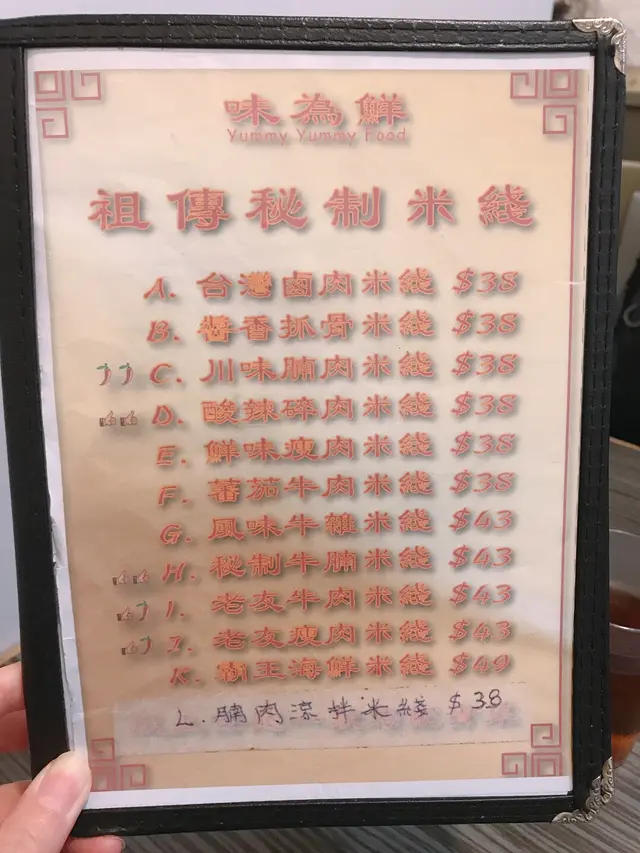 味為鮮
Yummy Yummy Food
祖傳秘制米綫
A. 台灣鹵肉米綫 $38
B. 醬香抓骨米綫 $38
C. 川味腩肉米綫 $38
D. 酸辣碎肉米綫 $38
E. 鮮味瘦肉米綫 $38
F. 蕃茄牛肉米綫 $38
G. 風味牛雜米綫 $43
H. 秘制牛腩米綫 $43
I. 老友牛肉米綫 $43
J. 老友瘦肉米綫 $43
K. 霸王海鮮米綫 $49
L. 腩肉涼拌米綫 $38